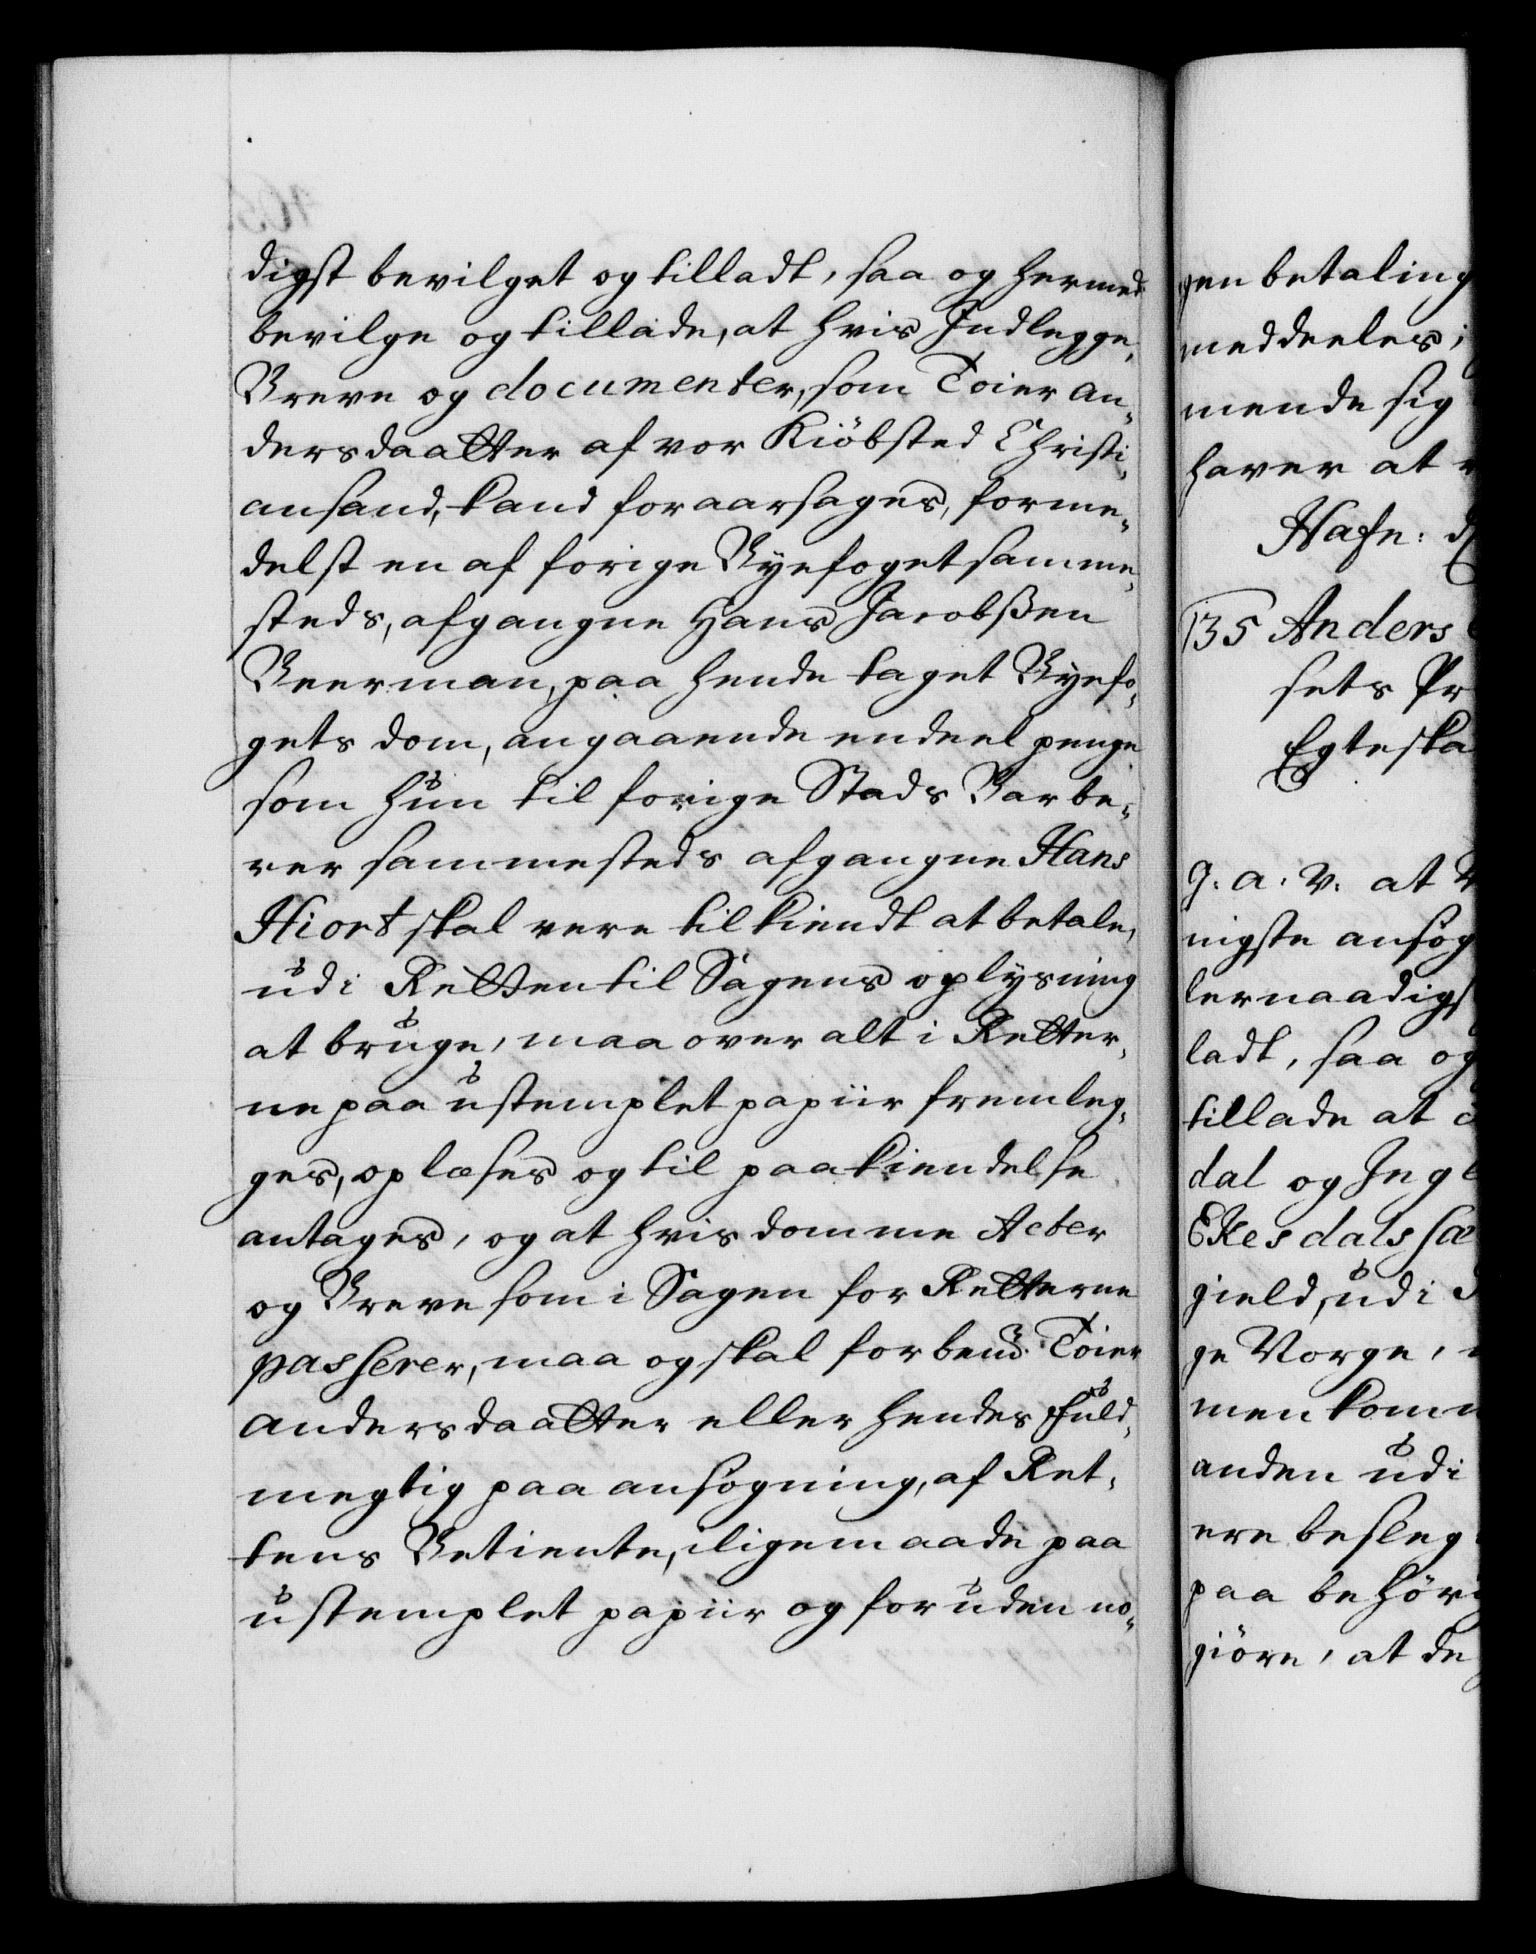 digst bevilget og tilladt, saa og hermed
bevilge og tillade, at hvis Indlegge,
Breve og documenter, som Toier An„
dersdaatter af vor Kiöbsted Christi„
ansand, kand foraarsages, forme„
delst en af forige Byefoget samme„
steds, afgangne Hans Jacobßen
Beerman, paa hende taget Byefo„
gets dom, angaaende endeel penge
som hun til forige Stads Barbe„
rer sammesteds afgangne Hans
Hiort skal vere tilkiendt at betale,
udi Retten til Sagens oplysning
at bruge, maa over alt i Retter„
ne paa ustemplet papiir fremleg„
ges, oplæses og til paakiendelse
antages, og at hvis domme Acter
og Breve som i Sagen for Retterne
passerer, maa og skal for bem.te Toier
Andersdaatter eller hendes Fuld„
megtig paa ansøgning, af Ret„
tens Betiente, iligemaade paa
ustemplet papiir og foruden no„
gen betaling
meddeeles;
mende sig
haver at
Hafn: d
135 Anders
sets Pr
Egteska
G: A: V: at V
nigste ansøg
lernaadigs
ladt, saa og
tillade at
dal og Ing
Ekesdals sæ
gield, udi
ge Norge,
men komm
anden udi
ere besleg
paa behöri
giöre, at de